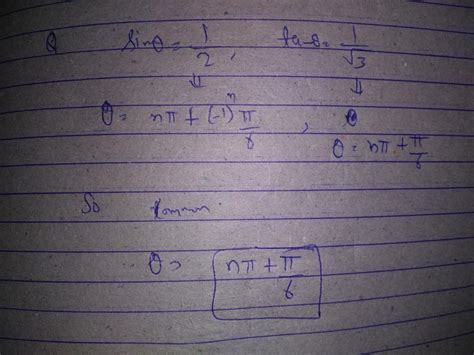 Q sinθ = 1/2, tanθ = 1/√3
⇓ ⇓
θ = nπ + (-1)^n π/6, θ = nπ + π/6
So common
θ = nπ + π/6